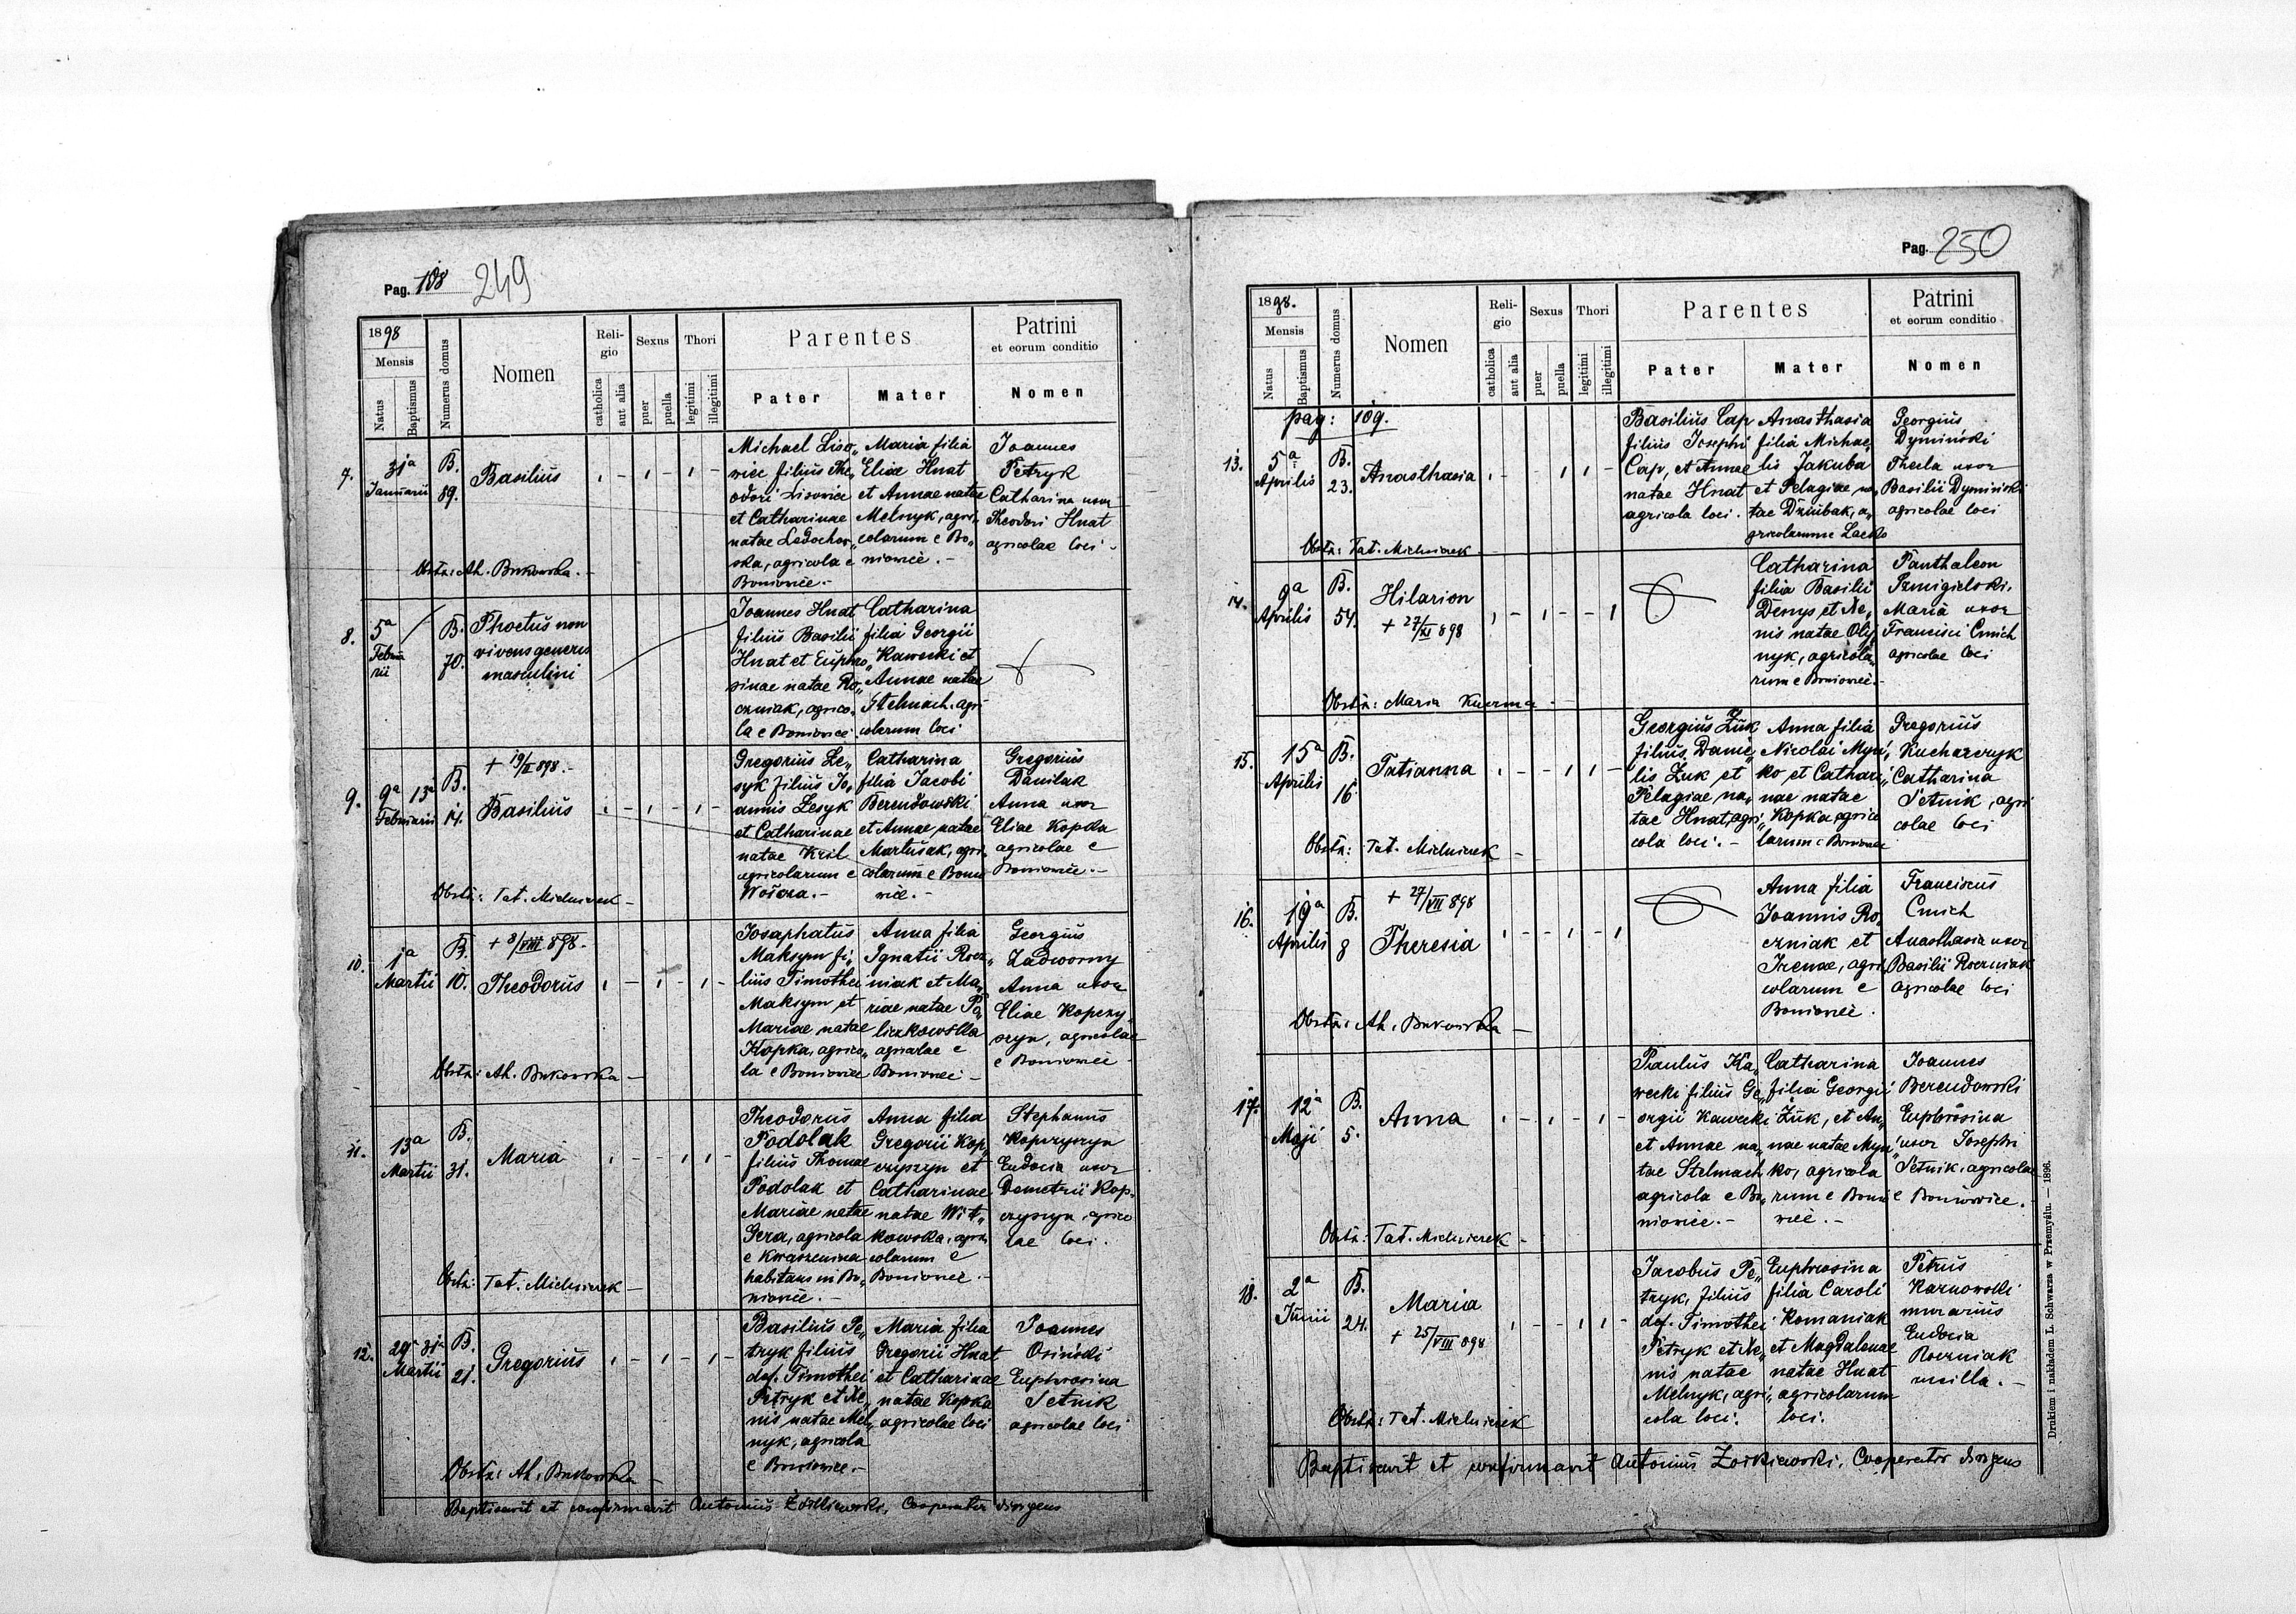 Pag. 108 249
1898
Mensis
Natus
Baptismus
Numerus domus
Nomen
Reli-
gio
catholica
aut alia
Sexus
puer
puella
Thori
legitimi
illegitimi
Parentes
Pater
Mater
Patrini
et eorum conditio
Nomen
7.
31a
Januarii
B.
89.
Basilius
Michael Liso„
wiec filius The„
odori Lisowiec
et Catharinae
natae Ladochow„
ska, agricola e
Boniowice.-
Maria filia
Eliae Hnat
et Annae natae
Melnyk, agri„
colarum e Bo„
niowice.-
Joannes
Petryk
Catharina uxor
Theodori Hnat
agricolae loci.
Obstx: Ah. Bukowska.-
8.
5a
Februa
rii
B.
70.
Phoetus non
vivens generis
masculini
Joannes Hnat
filius Basilii
Hnat et Euphro„
sinae natae Ro„
czniak, agrico„
la e Boniowice
Catharina
filia Georgii
Kawecki et
Annae natae
Stelmach, agri
colarum loci
9.
9a 13a
Februarii
B.
14.
+ 19/II 898.-
Basilius
Gregorius Le„
syk filius Jo„
annis Lesyk
et Catharinae
natae Kril
agricolarum e
Wołcza.-
Catharina
filia Jacobi
Berendowski
et Annae natae
Martusak, agri„
colarum e Bonio
wice.-
Gregorius
Danilak
Anna uxor
Eliae Kopka
agricolae e
Boniowice.-
Obstx: Tat. Mielniczek -
10.
1a
Martii
B.
10.
+ 8/VIII 898.
Theodorus
Josaphatus
Maksym fi„
lius Timothei
Maksym et
Mariae natae
Kopka, agrico„
la e Boniowice
Anna filia
Ignatii Rocz„
niak et Ma„
riae natae Pa„
liczkowska
agricolae e
Boniowice -
Georgius
Zadworny
Anna uxor
Eliae Kopczy„
szyn, agricolae
e Boniowice
Obstx: Ah. Bukowska -
11.
13a
Martii
B.
31.
Maria
Theodorus
Podolak
filius Thomae
Podolak et
Mariae natae
Gera, agricola
e Kwaszenina
habitans in Bo„
niowice.-
Anna filia
Gregorii Kop„
czyszyn et
Catharinae
natae Wit„
kowska, agri„
colarum e
Boniowice.-
Stephanus
Kopczyszyn
Eudocia uxor
Demetrii Kop„
czyszyn, agrico
lae loci.
Obstx: Tat. Mielniczek -
12.
29a 31a
Martii
B.
21.
Gregorius
Basilius Pe„
tryk filius
def. Timothei
Petryk et Xe„
nis natae Mel„
nyk, agricola
e Boniowice.-
Maria filia
Gregorii Hnat
et Catharinae
natae Kopka
agricolae loci
Joannes
Osiński
Euphrosina
Setnik
agricolae loci
Obstx: Ah. Bukowska -
Baptisavit et confirmavit Antonius Żółkiewski, Cooperator
Pag. 250
1898.
Mensis
Natus
Baptismus
Numerus domus
Nomen
Reli-
gio
catholica
aut alia
Sexus
puer
puella
Thori
legitimi
illegitimi
Parentes
Pater
Mater
Patrini
et eorum conditio
Nomen
pag: 109.
13.
5a
Aprilis
B.
23.
Anasthasia
Basilius Cap
filius Josephi
Cap, et Annae
natae Hnat
agricola loci.
Anasthasia
filia Michae„
lis Jakuba
et Pelagiae, na„
tae Dziubak, a„
gricolarum
Georgius
Dymiński
Thecla uxor
Basilii Dymiński
agricolae loci
Obstx: Tat. Mielniczek -
14.
9a
Aprilis
B.
54.
Hilarion
+ 27/XI 898
Catharina
filia Basilii
Denys et Xe„
nis natae Olij
nyk, agricola„
rum e Boniowice.-
Panthaleon
Szmigielski,
Maria uxor
Francisci Cmich
agricolae loci
Obstx: Maria Kuzma -
15.
15a
Aprilis
B.
16
Tatianna
Georgius Żuk
filius Danie„
lis Żuk et
Pelagiae na„
tae Hnat, agri„
cola loci.-
Anna filia
Nicolai Myń„
ko et Cathari„
nae natae
Kopka agrico
larum e Boniowice
Gregorius
Kucharczyk
Catharina
Setnik, agri
colae loci
Obstx: Tat. Mielniczek -
16.
19a
Aprilis
B.
8
+ 27/VII 898
Theresia
Anna filia
Joannis Ro„
czniak et
Irenae, agri„
colarum e
Boniowice.
Franciscus
Cmich
Anasthasia uxor
Basilii Roczniak
agricolae loci
Obstx: Ah. Bukowska -
17.
12a
Maji
B.
5.
Anna
Paulus Ka„
wecki filius Ge„
orgii Kawecki
et Annae na„
tae Stelmach
agricola e Bo„
niowice.-
Catharina
filia Georgii
Żuk, et An„
nae natae Myń„
ko, agricola
rum e Bonio
wice.-
Joannes
Berendowski
Euphrosina
uxor Josephi
Setnik, agricolae
e Boniowice.-
Obstx: Tat. Mielniczek -
18.
2a
Junii
B.
24.
Maria
+ 25/VIII 898
Jacobus Pe„
tryk, filius
def. Timothei
Petryk et Xe„
nis natae
Melnyk, agri„
cola loci.
Euphrosina
filia Caroli
Romaniak
et Magdalenae
natae Hnat
agricolarum
loci.
Petrus
Karnowski
murarius
Eudocia
Roczniak
ancilla.-
Obstx: Tat. Mielniczek
Baptisavit et confirmavit Antonius Żółkiewski, Cooperator
Drukiem i nakładem L. Schwarza w Przemyślu. — 1896.